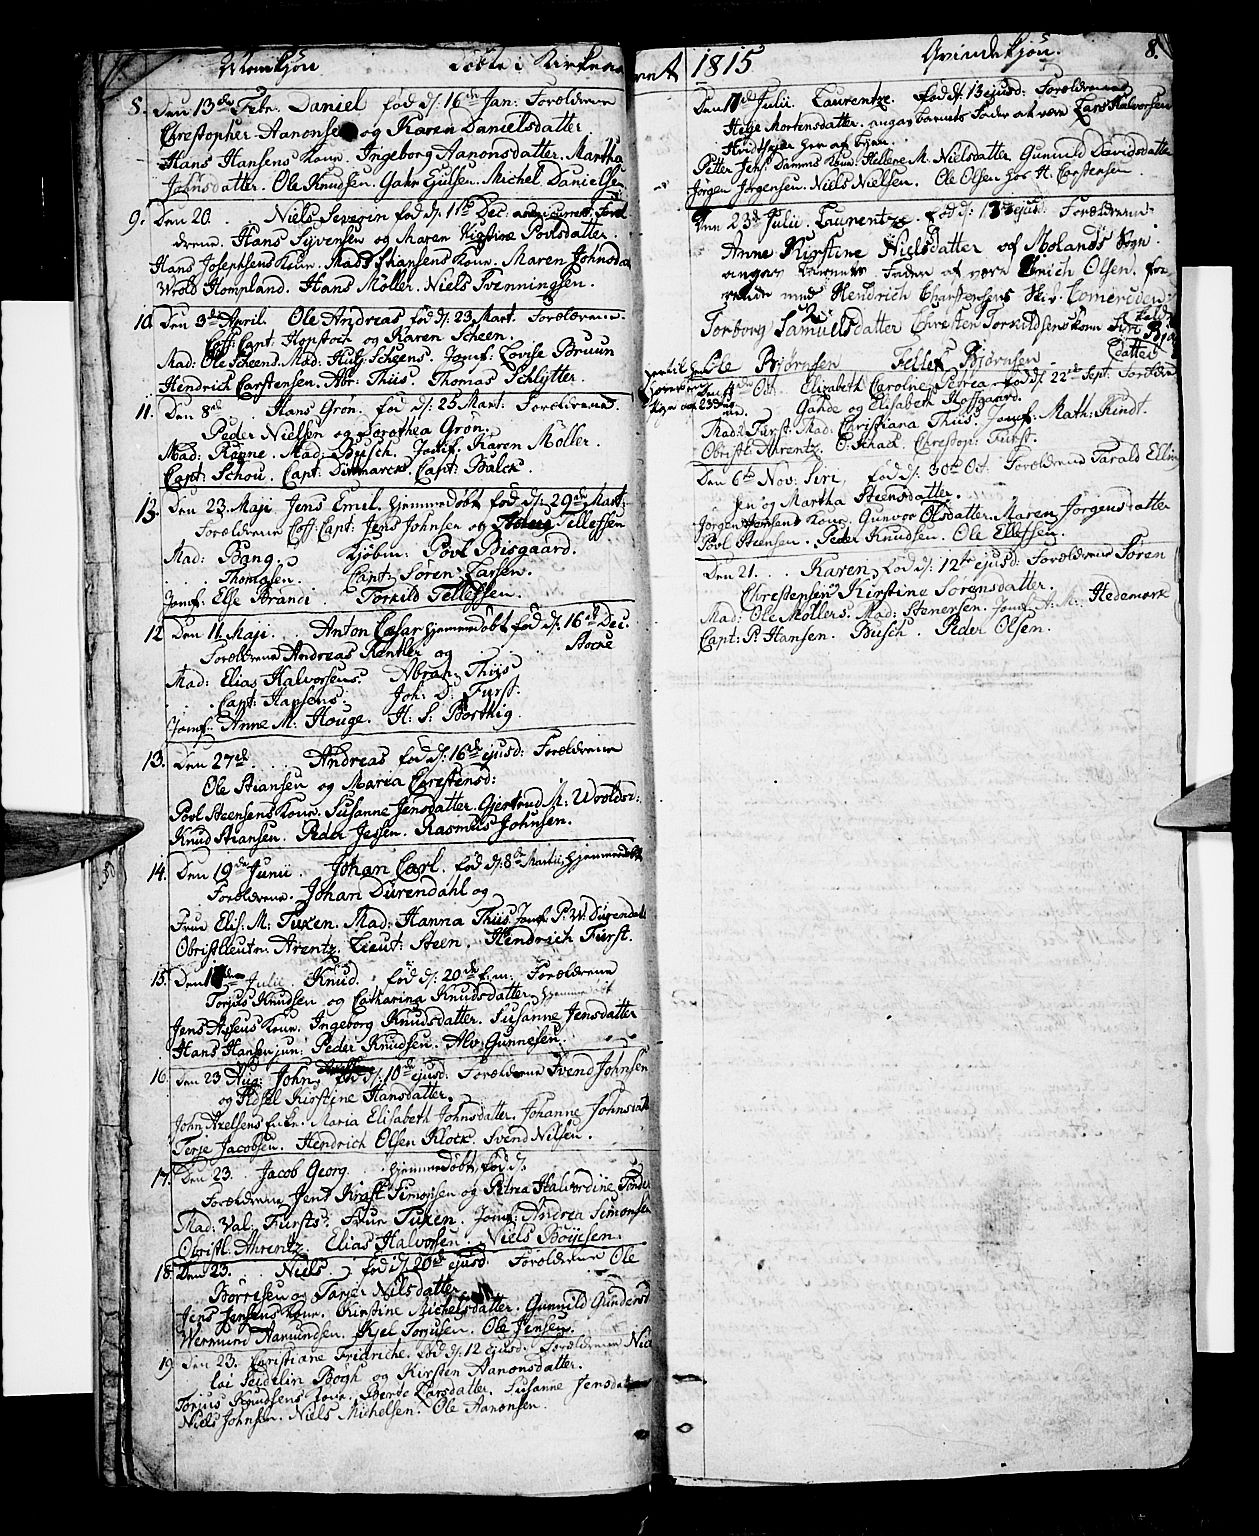 Mandkjøn Døbte i Kirken
8. Den 13de Febr. Daniel fød d: 16de Jan: Forældrene
Christopher Aanonsen og Karen Danielsdatter
Hans Hansens Kone. Ingeborg Aanonsdatter. Martha
Johnsdatter. Ole Knudsen. Michel Danielsen
9. Den 20. Niels Severin fød d: 11te Dec. Foræl
drene. Hans Syvensen og Maren Kirstine Povlsdatter.
Hans Josephsens Kone. Mads Hansens Kone. Maren Johnsda
Wrold Hompland. Hans Möller. Niels Tvenningsen.
10. Den 3die April. Ole Andreas fød d: 23 Mart. Forældrene
Coff: Capt: Hopstoch og Karen Scheen.
Mad: Ole Scheens. Mad: Scheens. Jomf: Lovise Bruun
Hendrich Carstensen. Abr: Thiis. Thomas Schlytter.
11. Den 8de Hans Grøn. fød d: 25 Mart. Forældrene.
Peder Nielsen og Dorothea Grøn.
Mad: Rønne. Mad: Busch. Jomf: Karen Möller.
Capt: Schou. Capt: Dinmarck. Capt: Balck.
13. Den 23. Maji Jens Emil, hjemmedøbt fød d: 29de Mart:
Forældrene Coff: Capt: Jens Johnsen og Tellefsen
Mad: Bang. Kjøbm: Povl Bisgaard.
Thomasen. Capt: Søren Larsen.
Jomf: Else Brandi Torkild Tellefsen.
12 Den 11 Maji. Anton Cæsar hjemmedøbt fød d: 16de Dec.
Forældrene Andreas Kentler og
Mad: Elias Halvorsens. Abrah: Thiis
Capt: Hansens. Joh: D: Furst.
Jomf: Anne M: Houge. H: S: Borthig.
13. Den 27de. Andreas fød d: 16de ejusd: Forældrene
Ole Stiansen og Maria Chrestensd:
Povl Steensens Kone. Susanne Jensdatter. Gjertrud M: Wroldsd:
Knud Stiansen. Peder Jessen. Rasmus Johnsen.
14. Den 19de Junii. Johan Carl. fød d: 8de Martii, hjemmedøbt
Forældrene Johan Dürendahl og
Frue Elis: M: Tuxen. Mad: Hanna Thiis. Jomf: P: W: Dürendahl
Obristleutn: Arentz. Lieut: Steen. Hendrich Furst.
15. Den Julii. Knud. fød d: 20de Forældrene
Torjus Knudsen og Catharina Knudsdatter hjemmedøbt
Jens Assens Kone. Ingeborg Knudsdatter. Susanne Jensdatter
Hans Hansen jun: Peder Knudsen. Alv Gunnesen.
16. Den 23 Aug: John, fød d: 10de ejusd: Forældrene Svend Johnsen
og Adsel Kirstine Hansdatter.
John Axelsens Enke. Maria Elisabeth Johnsdatter. Johanne Johnsdatt
Terje Jacobsen. Hendrich Olsen Klock. Svend Nilsen.
17. Den 23. Jacob Georg. hjemmedøbt, fød d:
Forældrene Jens Kraft Simonsen og Petrea Halvordine
Mad: Val: Fursts. Frue Tuxen. Jomf: Andrea Simonsen
Obristl: Ahrentz. Elias Halvorsen. Niels Boyesen.
18. Den 23. Niels fød d: 20de ejusd: Forældrene Ole
Börresen og Tarjer Nilsdatter
Jens Jensens Kone. Kirstine Michelsdatter. Gunnild Gunders
Wermund Aamundsen. Kjel Torjusen. Ole Jensen.
19 Den 23. Christiane Fridriche. fød d: 12 ejusd. Forældrene Nico
lai Seidelin Bögh og Kirsten Aanonsdatter.
Torjus Knudsens Kone. Berte Larsdatter. Susanne Jensdatter
Niels Johnsen. Niels Michelsen. Ole Aanonsen.
1815 Qvindekjøn. 8.
Den Julii. Laurentze. fød d: 13 ejusd: Forældrene
Helje Mortensdatter. angav barnets Fader at være Lars Halvorsen
her af byen.
Petter Jens: Damms Kone. Hellene M. Nielsdatter. Gunnild Davidsdatter
Jørgen Jørgensen. Niels Nielsen. Ole Olsen hos H. Carstensen.
Den 23de Julii. Laurentze. fød d: 13 ejusd. Forældrene
Anne Kirstine Nielsdatter af Molands Sogn
angav barnets Fader at være Enich Olsen, fa
rende med Hendrich Christensens Skib
Torborg Samuelsdatter Christen Torkildsens Kone Siri Bjø
datter
Ole Bjørnsen Tellef Bjørnsen
Den 4de Oct. Elizabeth Caroline Petrea. fød d: 22de Sept. Foræld
ne. Gahde og Elisabeth Hoffgaard.
Mad: Furst. Mad: Christiana Thiis. Jomf: Math: Kindt.
Obristl: Ahrentz. O: Schack. Chrestop: Furst.
Den 6te Nov: Siri, fød d: 30te Oct. Forældrene Tarald Elling
sen og Martha Steensdatter.
Jørgen Hansens Kone. Gunvor Olsdatter. Maren Jørgensdatter
Povl Steensen. Peder Knudsen. Ole Ellefsen.
Den 21. Karen, fød d: 12te ejusd: Forældrene Søren
Chrestensen Kirstine Sørensdatter.
Mad: Ole Möllers. Mad: Stenersen. Jomf: A: M: Hedemark
Capt: P: Hansen. Busch. Peder Olsen.